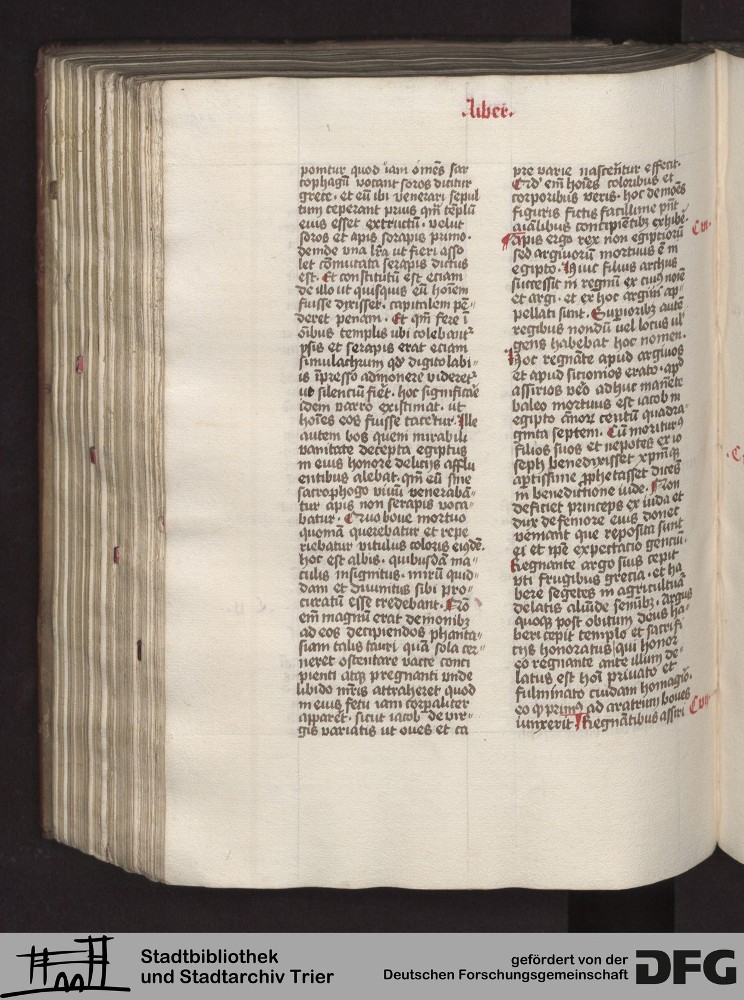 .Liber.
ponitur quod iam om̄es sar
cophagū vocant soros dicitur
grece. et eū ibi venerari sepul
tum ceperant prius qm̄ teplū
eius esset extructū. velut
soros et apis sorapis primo.
deinde vna lr̄a ut fieri asso
let cōmutata serapis dictus
est. Et constitutū est eciam
de illo ut quisquis eū hoīem
fuisse dixisset. capitalem pē-
deret penam. Et qm̄ fere ī
oībus templis ubi colebant᷑
ysis et serapis erat eciam
simulachrum qd̓ digito labi-
is īpresso admonere videret᷑
ut silenciū fiet̄. hoc significāē
idem varro existimat. ut
hoīes eos fuisse tacetur. Ille
autem bos quem mirabili
vanitate decepta egiptus
in eius honore delicijs afflu
entibus alebat. qm̄ eū sine
sarcophogo viuū venerabā-
tur apis non serapis voca-
batur. Quo boue mortuo
quoniā querebatur et repe
riebatur vitulus coloris eiusdē.
hoc est albis. quibusdā ma-
culis insignitus. mirū quid-
dam et diuinitus sibi pro-
curatū esse credebant. Nō
em̄ magnū erat demonibꝫ
ad eos decipiendos phanta-
siam talis tauri quā sola cer-
neret ostentare vacce conci
pienti atqꝫ pregnanti vnde
libido mr̄is attraheret quod
in eius fetu iam corꝑaliter
apparet̄. sicut iacob de vir-
gis variatis ut oues et ca
pre varie nascerēt᷑ effecit.
Qd̓ em̄ hoīes coloribus et
corporibus veris. hoc demōēs
figuris fictis facillime pn̄t
aīalibus concipientibꝫ exhibē.
Apis ergo rex non egiptiorū Cvi.
sed argiuorum mortuus ē in
egipto. Huic filius arghus
successit in regnū ex cuiꝰ noīe
et argi. et ex hoc argiui ap-
pellati sunt. Superioribus autē
regibus nondū vel locus vl̓
gens habebat hoc nomen.
Hoc regnāte apud argiuos
et apud sicionios erato. apd̓
assirios v̓o adhuc manēte
baleo mortuus est iacob in
egipto ānorꝫ centū quadra-
ginta septem. Cū moriturꝰ
filios suos et nepotes ex io
seph benedixisset xpm̄qꝫ
aptissime ꝓphetasset dicēs
in benedictione iude. Non
deficiet princeps ex iuda et
dux de femore eius donec
veniant que reposita sunt
ei et ip̄e expectacio genciū.
Regnante argo suis cepit
vti frugibus grecia. et ha
bere segetes in agricultura
delatis aliūde semībꝫ. Argus
quoqꝫ post obitum deus ha-
beri cepit templo et sacrifi
cijs honoratus qui honor
eo regnante ante illum de-
latus est hoī priuato et
fulminato cuidam homagiro.
eo ꝙ primꝰ ad aratrum boues
iunxerit Regnātibus assiri Cvii
Stadtbibliothek
und Stadtarchiv Trier
gefördert von der
Deutschen Forschungsgemeinschaft
DFG